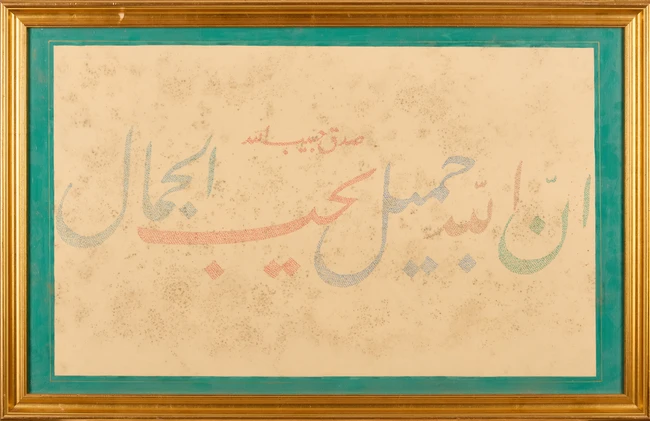 انّ الله جميل يحب الجمال
صدق حبيب الله